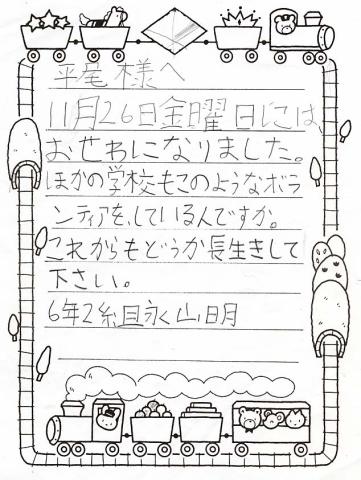 平尾様へ
11月26日金曜日には、
おせわになりました。
ほかの学校もこのようなボラ
ンティアを、しているんですか。
これからもどうか長生きして
下さい。
6年2組永山明